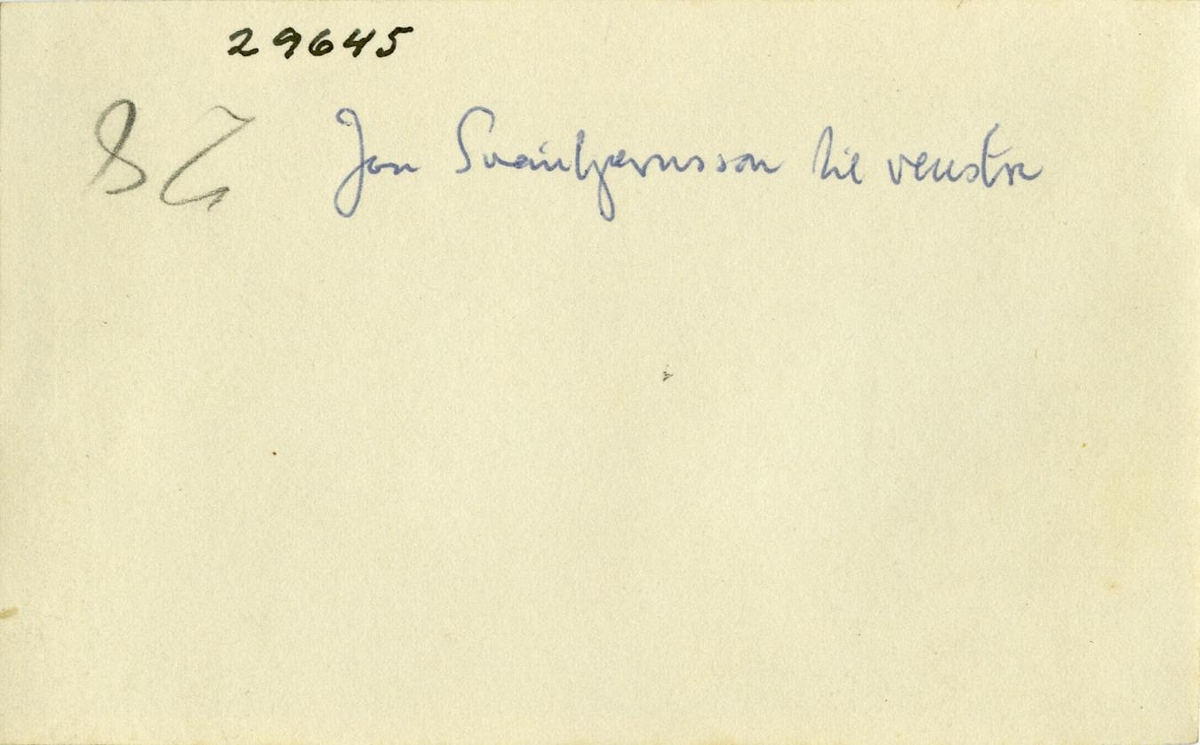 29645
Jon Sveinbjørnsson til venstre